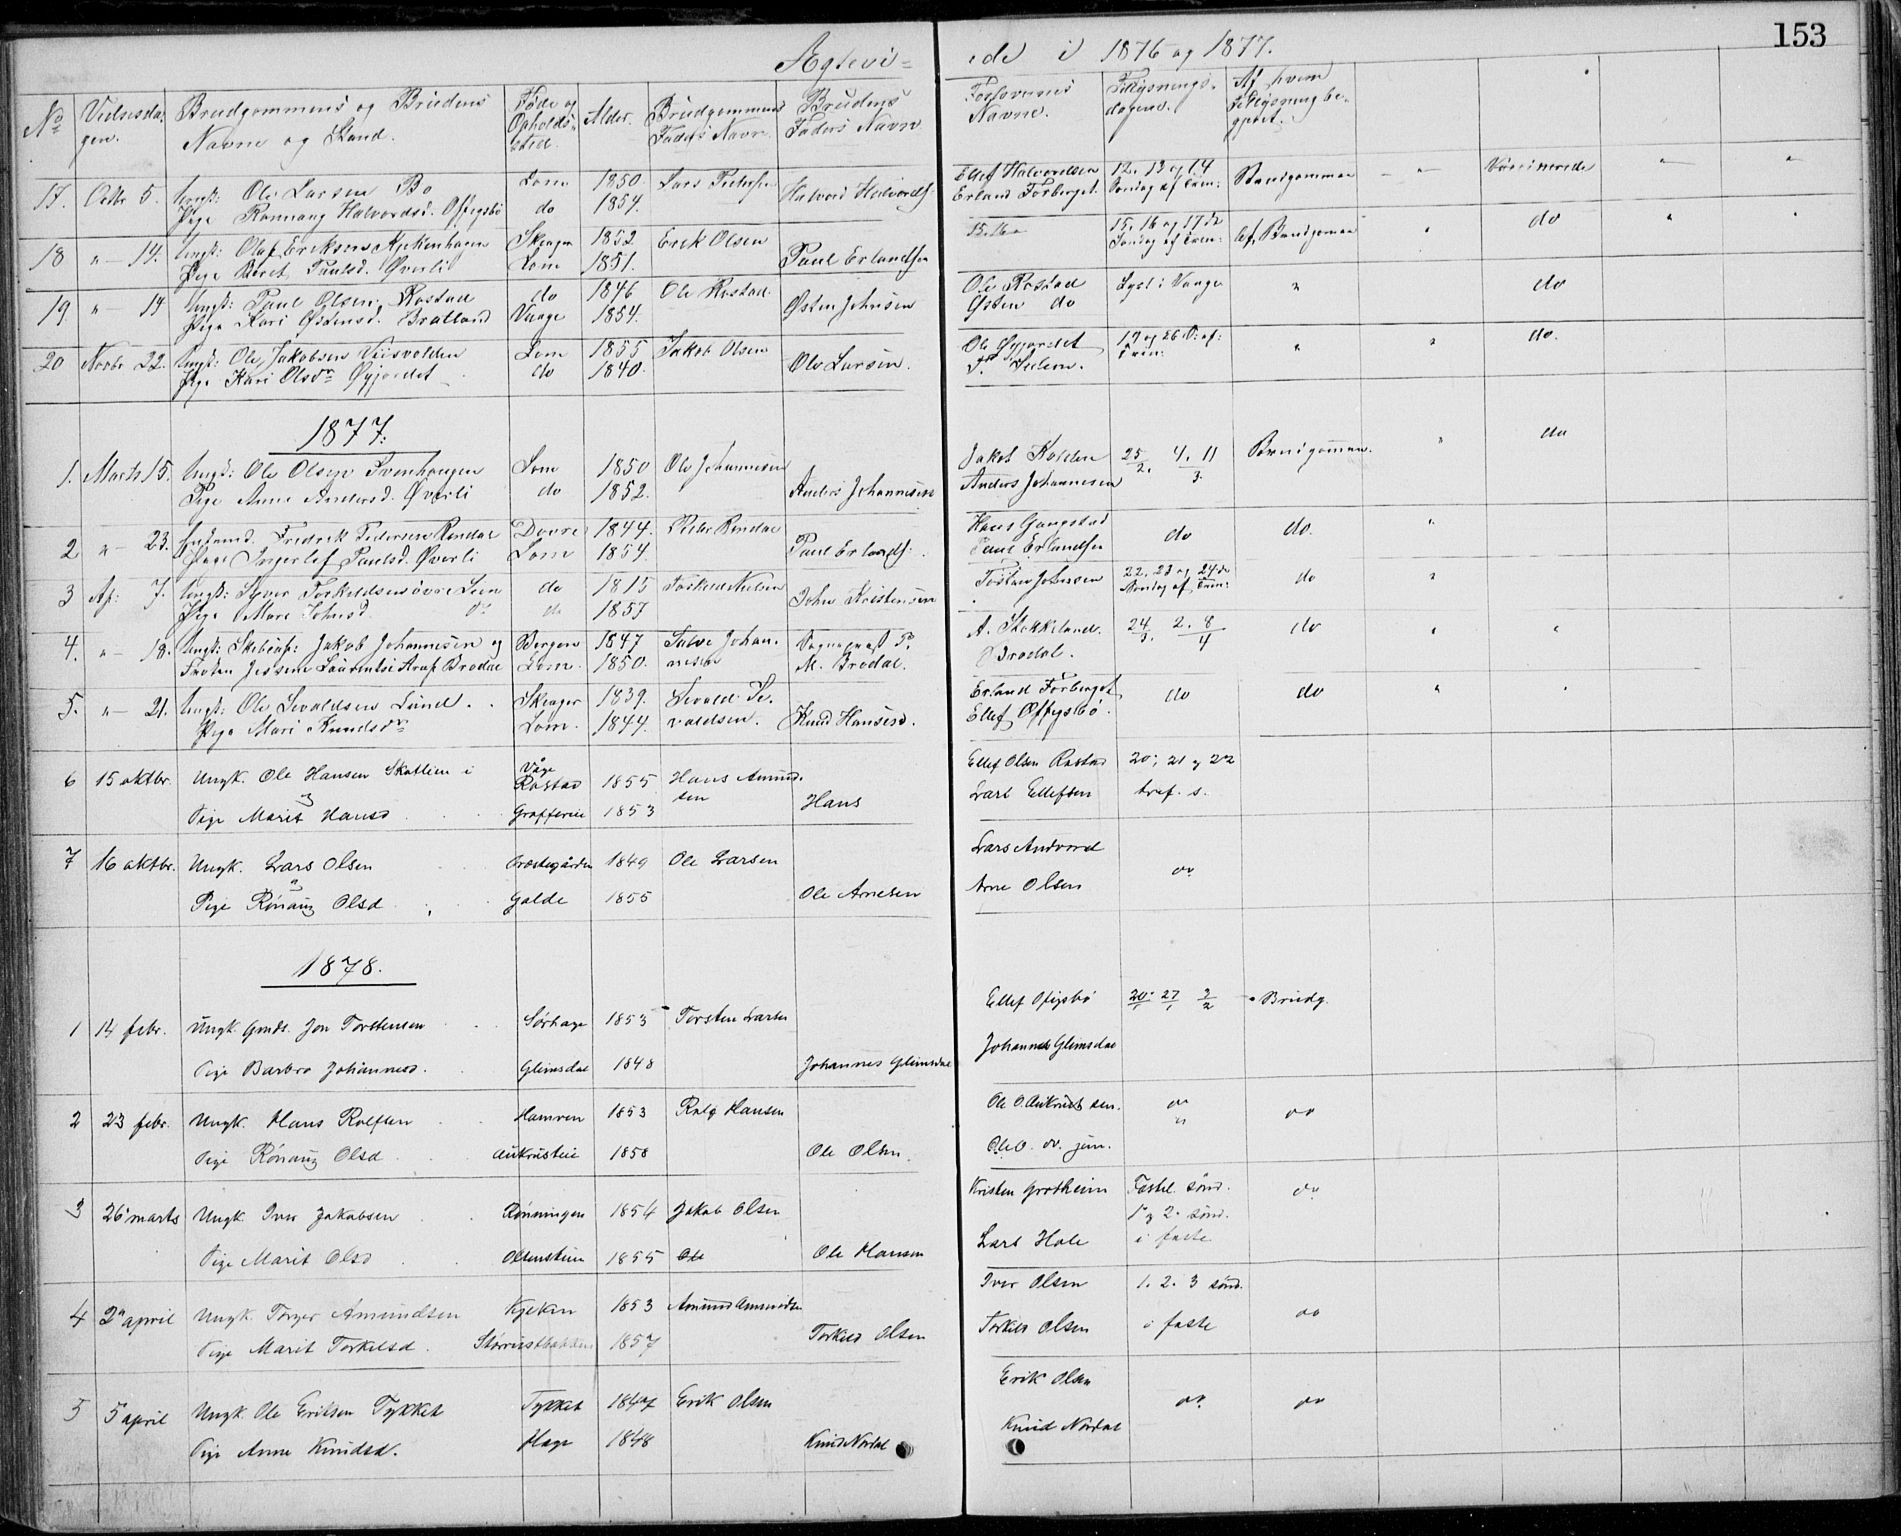 153
Ægtevi= ede i 1876 og 1877.
No Vielsesda= gen. Brudgommens og Brudens Navne og Stand. Føde og Opholds= sted. Alder. Brudgommens Faders Navn. Brudens Faders Navn. Forlovernes Navne. Tillysnings= dagene. Af hvem Tillysning be= gjært.
17. Octbr 5. Ungk: Ole Larsen Bø Lom 1850. Lars Pedersen Ellef Halvordsen 12, 13 og 14 Brudgommen " Vaccinerede " "
Pige Rønnaug Halvordsd. Offigsbø do 1854. Halvord Halvordsen Erland Forberget. Søndag af Trin:
18 " — 14. Ungk: Olaf Eriksen Kjekenhagen Skeager 1852 Erik Olsen 15. 16 15, 16 og 17de af Brudgommen " do " "
Pige Beret Paulsd. Øverli Lom 1851. Paul Erlandsen Søndag af Trin:
19. " — 14 Ungk: Paul Olsen Rostad do 1846 Ole Rostad. Ole Rostad Lyst i Vaage " do
Pige Kari Østensd. Bratland Vaage 1854. Østen Johnsen Østen do
20 Novbr 22. Ungk: Ole Jakobsen Lom 1855 Jakob Olsen Ole Øygjordet 19 og 26 S. af: " " do.
Pige Kari Olsdr Øygjordet do 1840. Ole Larsen. Trin:
1877.
1. Marts 15. Ungk: Ole Olsen Lom 1850 Ole Johannesen Jakob Kolden 25/2. 4. 11/3. Brudgommen. " do
Pige Anne Andersd. Øverli do 1852. Anders Johannesen Anders Johannesen
2 " — 23. Fredrik Pedersen Rindal Dovre 1844. Peder Rindal Hans Gangstad do do. "
Pige Ingerlef Paulsd. Øverli Lom 1854. Paul Erlands: Paul Erlandsen
3 Ap: 7. Ungk: Syver Torkildsen øvre Lien do 1815 Torkild Nielsen Torsten Johnsen 22, 23 og 24de do "
Pige Mari Johnsd. do do 1857 John Kristensen Søndag af Trin:
4. " — 18. Ungk: Skibsap: Jakob Johannesen og Bergen 1847 Johan= A. Stokkeland. 24/3. 2. 8/4 do " "
Frøken Jessine Laurentse Brodal Lom. 1850. nesen M. Brodal. Brodal.
5. " — 21. Ungk: Ole Sevaldsen Lund. Skeager 1839. Sevald Se= Erland Forberget do do " "
Pige Mari Knudsdr Lom. 1844. valdsen. Knud Hansen. Ellef Offigsbø.
6 15 oktbr. Ungk. Ole Hansen Skottlien i Våge Rostad 1855 Hans Amund= sen Ellef Olsen Rostad 20, 21 og 22
Pige Marit Hansd Grafferlie 1853 Hans Lars Ellefsen tref. s.
7 16 oktbr. Ungk. Lars Olsen Præstegården 1849 Ole Larsen Lars Andvord do
Pige Rønaug Olsd Galde 1855 Ole Arnesen Arne Olsen
1878.
1 14 febr. Ungk. Gmds. Jon Torstensen Sørhage 1853 Torsten Larsen Ellef Ofigsbø 20/1 27/1 3/2 Brudg.
Pige Barbro Johannesd. Glimsdal 1848 Johannes Glimsdal Johannes Glimsdal
2 23 febr. Ungk. Hans Rolfsen Hamren 1853 Rolf Hansen Ole O. Aukrust sen. do do
Pige Rønaug Olsd Aukrustlie 1858 Ole Olsen Ole O. do. jun.
3 26 marts Ungk. Iver Jakobsen Rønningen 1854 Jakob Olsen Kristen Grotheim Fastel. sønd. do
1 og 2. sønd.
Pige Marit Olsd 1855 Ole Ole Hansen Lars Hole i faste
4 2 april Ungk. Torger Amundsen Kjeken 1853 Amund Amundsen Iver Olsen 1. 2. 3 sønd. do
Pige Marit Torkelsd. 1857 Torkild Olsen Torkild Olsen i faste
5 5 april Ungk. Ole Eriksen Tykket Tykket 1847 Erik Olsen Erik Olsen do do
Pige Anne Knudsd. Hage 1848 Knud Nordal Knud Nordal